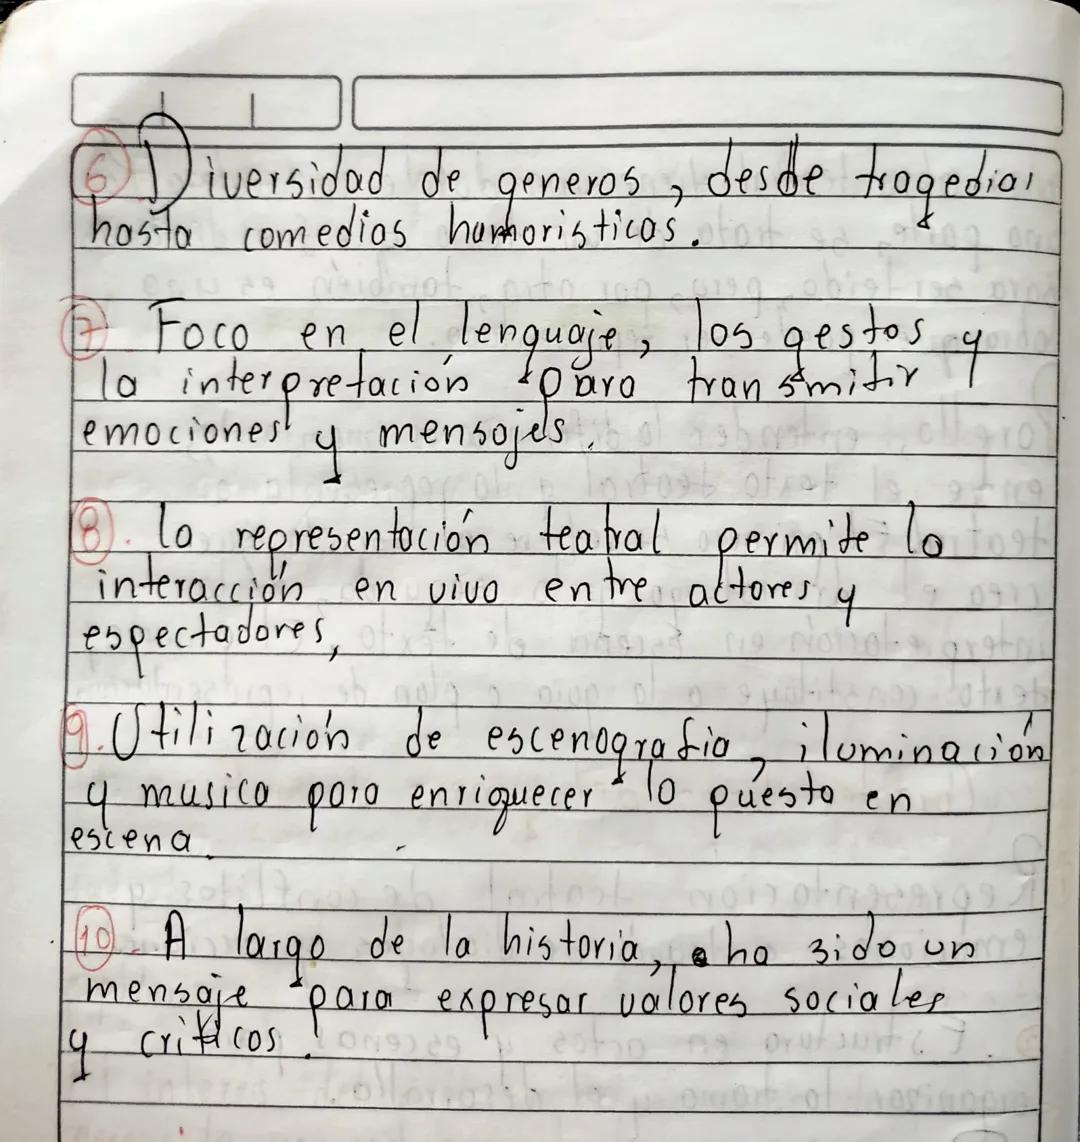 6. Diversidad de generos, desde tragedias
hasta comedias humoristicas.
7 Foco en el lenguaje, los gestos y
la interpretación para transmitir
emociones y mensajes.
8. la representación teatral permite la
interacción en vivo entre actores y
espectadores,
9. Utilización de escenografia, iluminación
y musica para enriquecer la puesta en
escena.
10. A largo de la historia, ha sido un
mensaje para expresar valores sociales
y criticos.